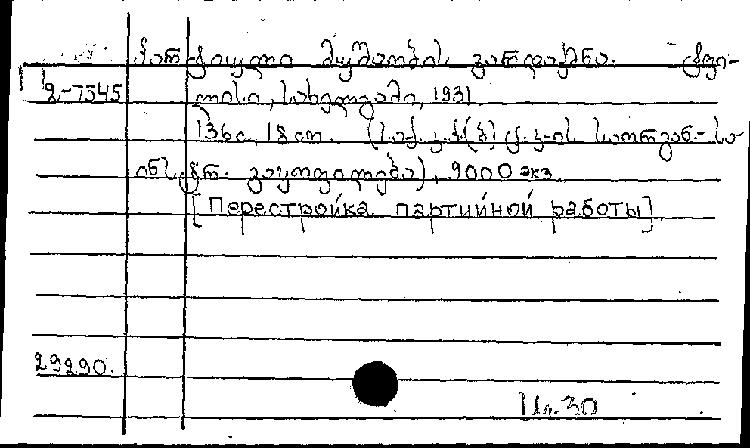 პარტიული მუშაობის გარდაქმნა. ტფი-
2-7345 ლისი, სახელგამი, 1931.
136გ, 18სმ. (საქ. კ.პ(ბ) ც.კ-ის საორგან.-სა
ინსტრ. განყოფილება), 9000 экз.
[Перестройка партийной работы]
29290.
30